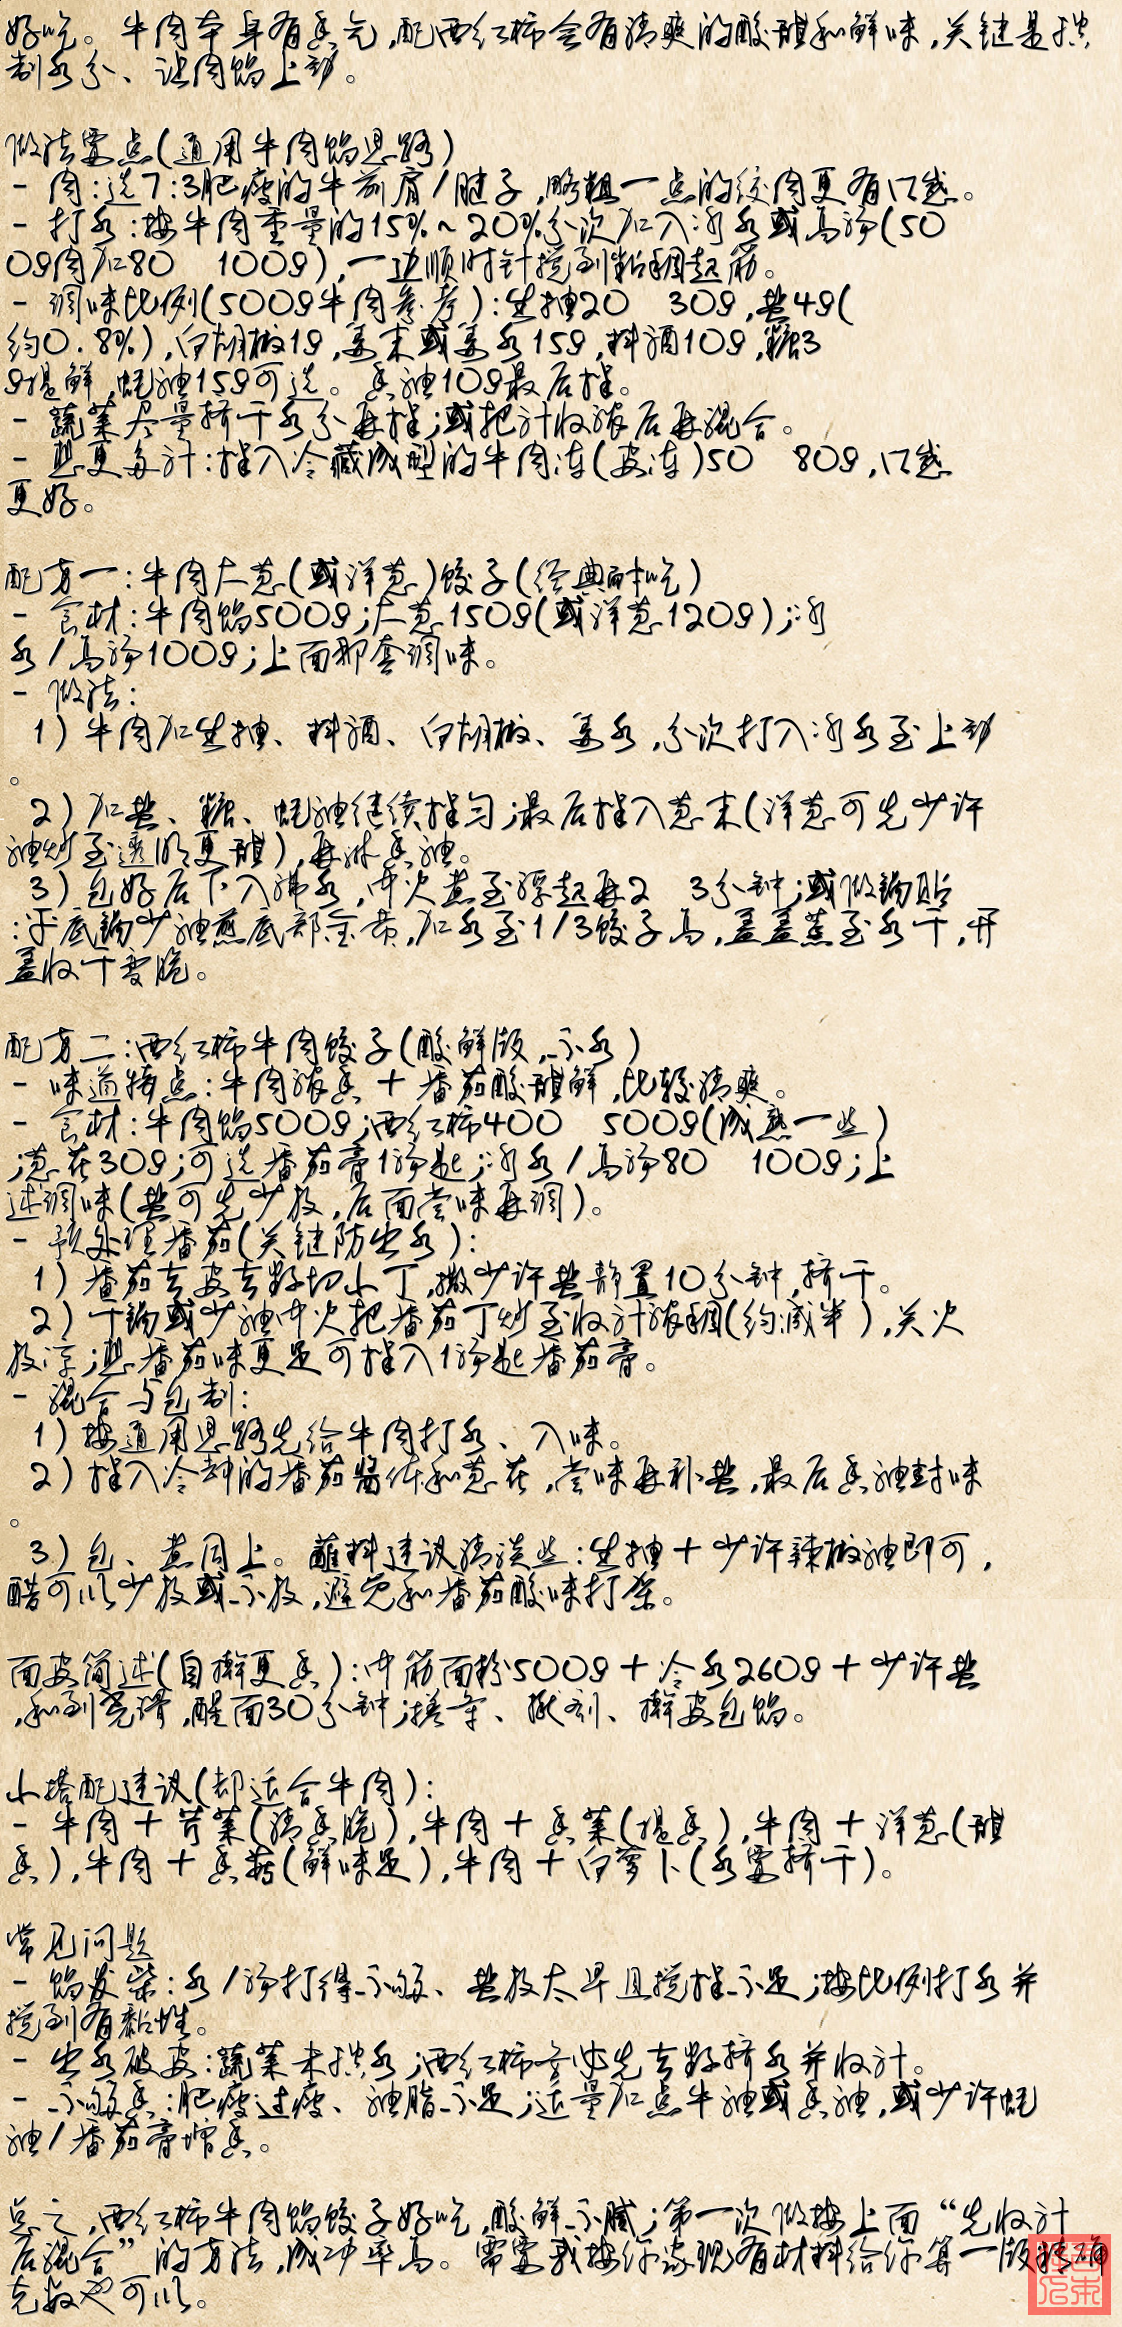 好吃。牛肉本身有香气,配西红柿会有清爽的酸甜和鲜味,关键是控
制水分、让肉馅上劲。
做法要点(通用牛肉馅思路)
- 肉:选7:3肥瘦的牛前肩/腱子,略粗一点的绞肉更有口感。
- 打水:按牛肉重量的15%~20%分次加入冰水或高汤(50
0g肉加80 100g),一边顺时针搅到粘稠起筋。
- 调味比例(500g牛肉参考):生抽20 30g,盐4g(
约0.8%),白胡椒1g,姜末或姜水15g,料酒10g,糖3
g提鲜,蚝油15g可选。香油10g最后拌。
- 蔬菜尽量挤干水分再拌;或把汁收浓后再混合。
- 想更多汁:拌入冷藏成型的牛肉冻(皮冻)50 80g,口感
更好。
配方一:牛肉大葱(或洋葱)饺子(经典耐吃)
- 食材:牛肉馅500g;大葱150g(或洋葱120g);冰
水/高汤100g;上面那套调味。
- 做法:
1) 牛肉加生抽、料酒、白胡椒、姜水,分次打入冰水至上劲
。
2) 加盐、糖、蚝油继续拌匀;最后拌入葱末(洋葱可先少许
油炒至透明更甜),再淋香油。
3) 包好后下入沸水,中火煮至浮起再2 3分钟;或做锅贴
:平底锅少油煎底部金黄,加水至1/3饺子高,盖盖蒸至水干,开
盖收干变脆。
配方二:西红柿牛肉饺子(酸鲜版,不水)
- 味道特点:牛肉浓香+番茄酸甜鲜,比较清爽。
- 食材:牛肉馅500g;西红柿400 500g(成熟一些)
;葱花30g;可选番茄膏1汤匙;冰水/高汤80 100g;上
述调味(盐可先少放,后面尝味再调)。
- 预处理番茄(关键防出水):
1) 番茄去皮去籽切小丁,撒少许盐静置10分钟,挤干。
2) 干锅或少油中火把番茄丁炒至收汁浓稠(约减半),关火
放凉;想番茄味更足可拌入1汤匙番茄膏。
- 混合与包制:
1) 按通用思路先给牛肉打水、入味。
2) 拌入冷却的番茄酱体和葱花,尝味再补盐,最后香油封味
。
3) 包、煮同上。蘸料建议清淡些:生抽+少许辣椒油即可,
醋可以少放或不放,避免和番茄酸味打架。
面皮简述(自擀更香):中筋面粉500g+冷水260g+少许盐
,和到光滑,醒面30分钟;搓条、揪剂、擀皮包馅。
小搭配建议(都适合牛肉):
- 牛肉+芹菜(清香脆),牛肉+香菜(提香),牛肉+洋葱(甜
香),牛肉+香菇(鲜味足),牛肉+白萝卜(水要挤干)。
常见问题
- 馅发柴:水/汤打得不够、盐放太早且搅拌不足;按比例打水并
搅到有黏性。
- 出水破皮:蔬菜未控水;西红柿务必先去籽挤水并收汁。
- 不够香:肥瘦过瘦、油脂不足;适量加点牛油或香油,或少许蚝
油/番茄膏增香。
总之,西红柿牛肉馅饺子好吃,酸鲜不腻;第一次做按上面“先收汁
后混合”的方法,成功率高。需要我按你家现有材料给你算一版精确
克数也可以。